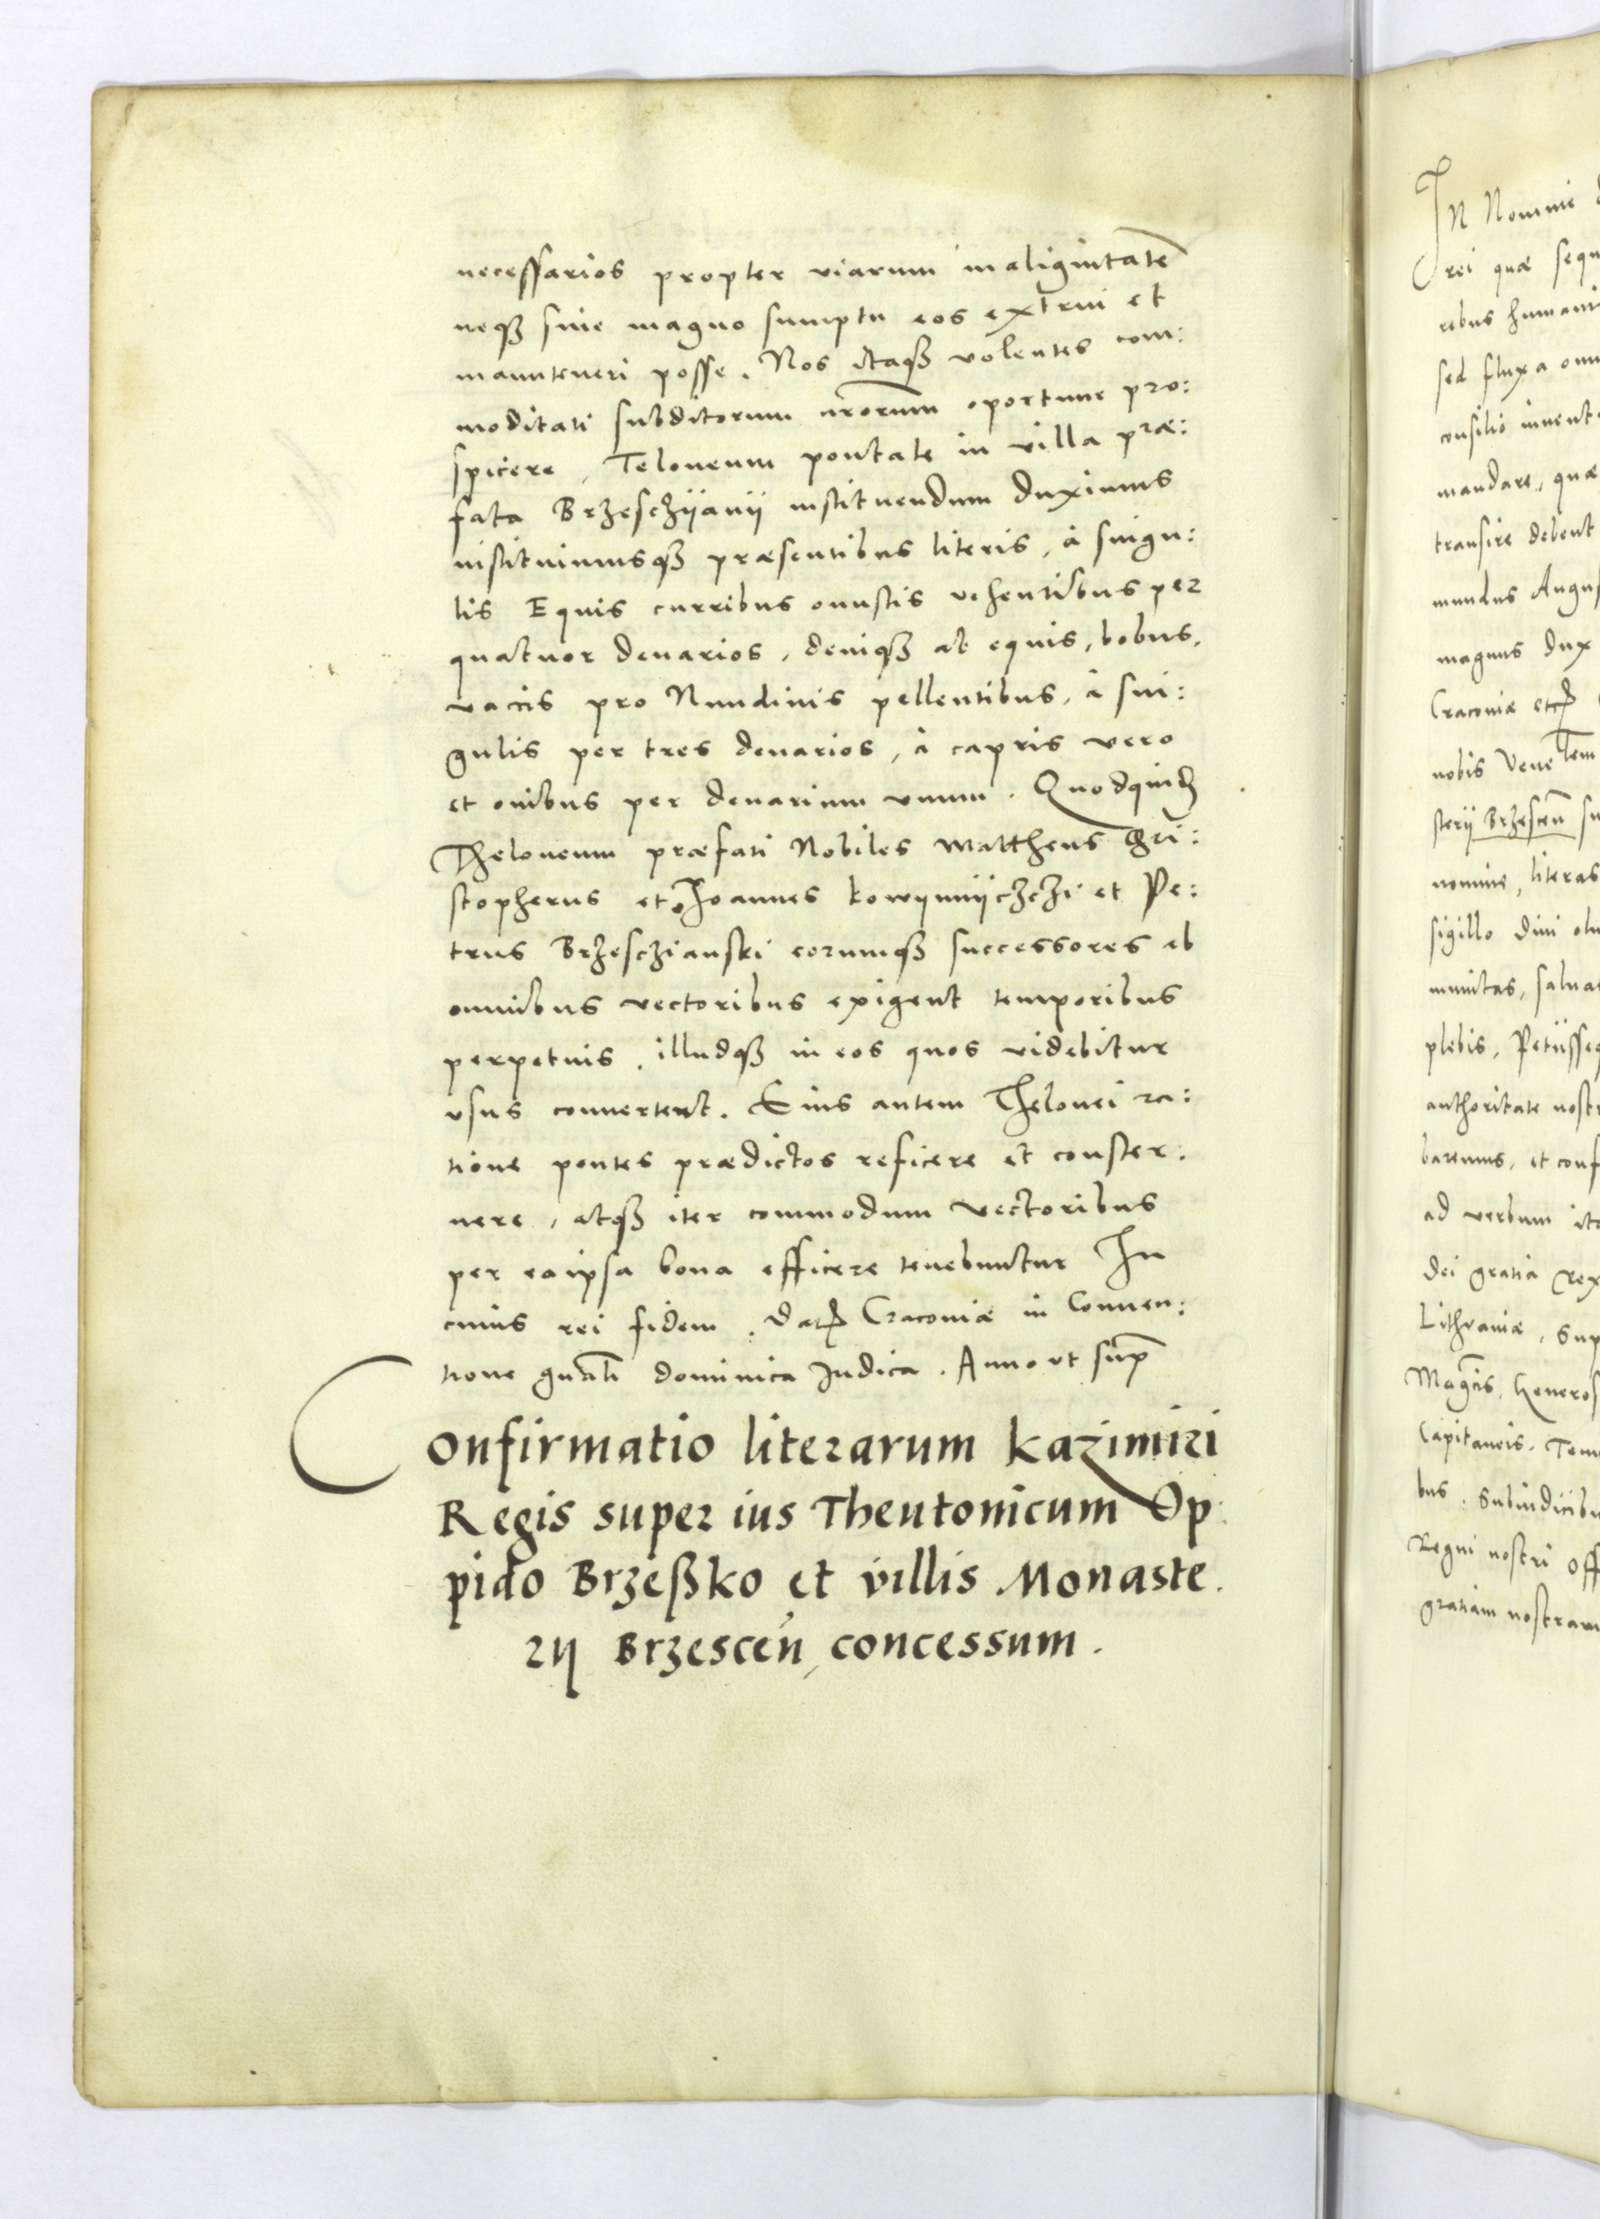 necessarios propter viarum malignitatē
neqꝫ sine magno sumptu eos extrui et
manuteneri posse. Nos itaqꝫ volentes com:
moditati subditorum nrōrum oportune pro:
spicere, Teloneum pontale in villa præ:
fata Brzesczÿanÿ instituendum duximus
instituimusqꝫ præsentibus literis, à singu:
lis Equis curribus onustis vehentibus per
quatuor denarios, deniqꝫ at equis, bobus,
vacis pro Nundinis pellentibus, à sin:
gulis per tres denarios, à capris vero
et ouibus per denarium vnum. Quodquidē
Theloneum præfati Nobiles Mattheus Chri:
stopherus et Joannes Kowÿnnÿczczi et Pe:
trus Brzesczianski eorumqꝫ successores ab
omnibus vectoribus exigent temporibus
perpetuis, illudqꝫ in eos quos videbitur
vsus conuertent. Eius autem Thelonei ra:
tione pontes prædictos reficere et conster:
nere, atqꝫ iter commodum vectoribus
per ea ipsa bona efficere tenebuntur In
cuius rei fidem. Datꝭ Cracoviæ in Conuen:
tione gnāli dominica Judica. Anno vt sup̄
Confirmatio literarum Kazimiri
Regis super ius Theutonicum Op:
pido Brzeßko et villis Monaste.
rij Brzesceń, concessum.
In Nomine
rei quæ sequ
rebus humani
sed fluxa omn
consilio invent
mandare, quæ
transire debent
mundus Augus
magnus Dux
Cracoviæ etcꝭ
nobis Vene lem
sterij Brzesceń su
nomine, literas
sigillo diui oli
munitas, salua
plebis, Petÿsse
authoritate nost
baremus, et conf
ad verbum ita
Dei gratia Rex
Lithvaniæ, Sup
Magc̄is, Generos
Capitaneis, Tenu
bus, Subiudicibu
Regni nostri off
gratiam nostram